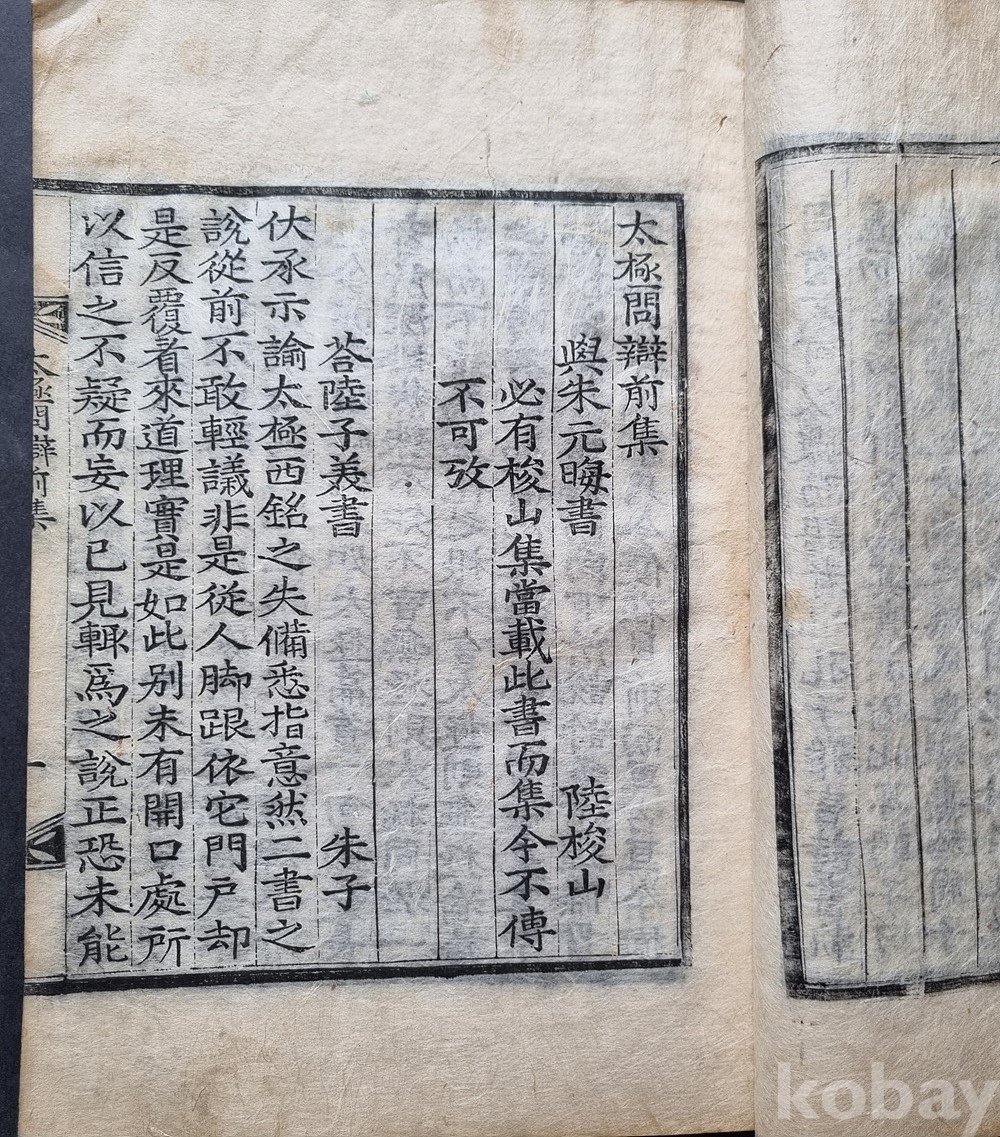 太極問辯前集
與朱元晦書 陸梭山
必有梭山集當載此書而集今不傳
不可攷
荅陸子美書 朱子
伏承示諭太極西銘之失備悉指意然二書之
說從前不敢輕議非是從人脚跟依它門戶却
是反覆看來道理實是如此別未有開口處所
以信之不疑而妄以已見輙爲之說正恐未能
太極問辯前集
一
kobay